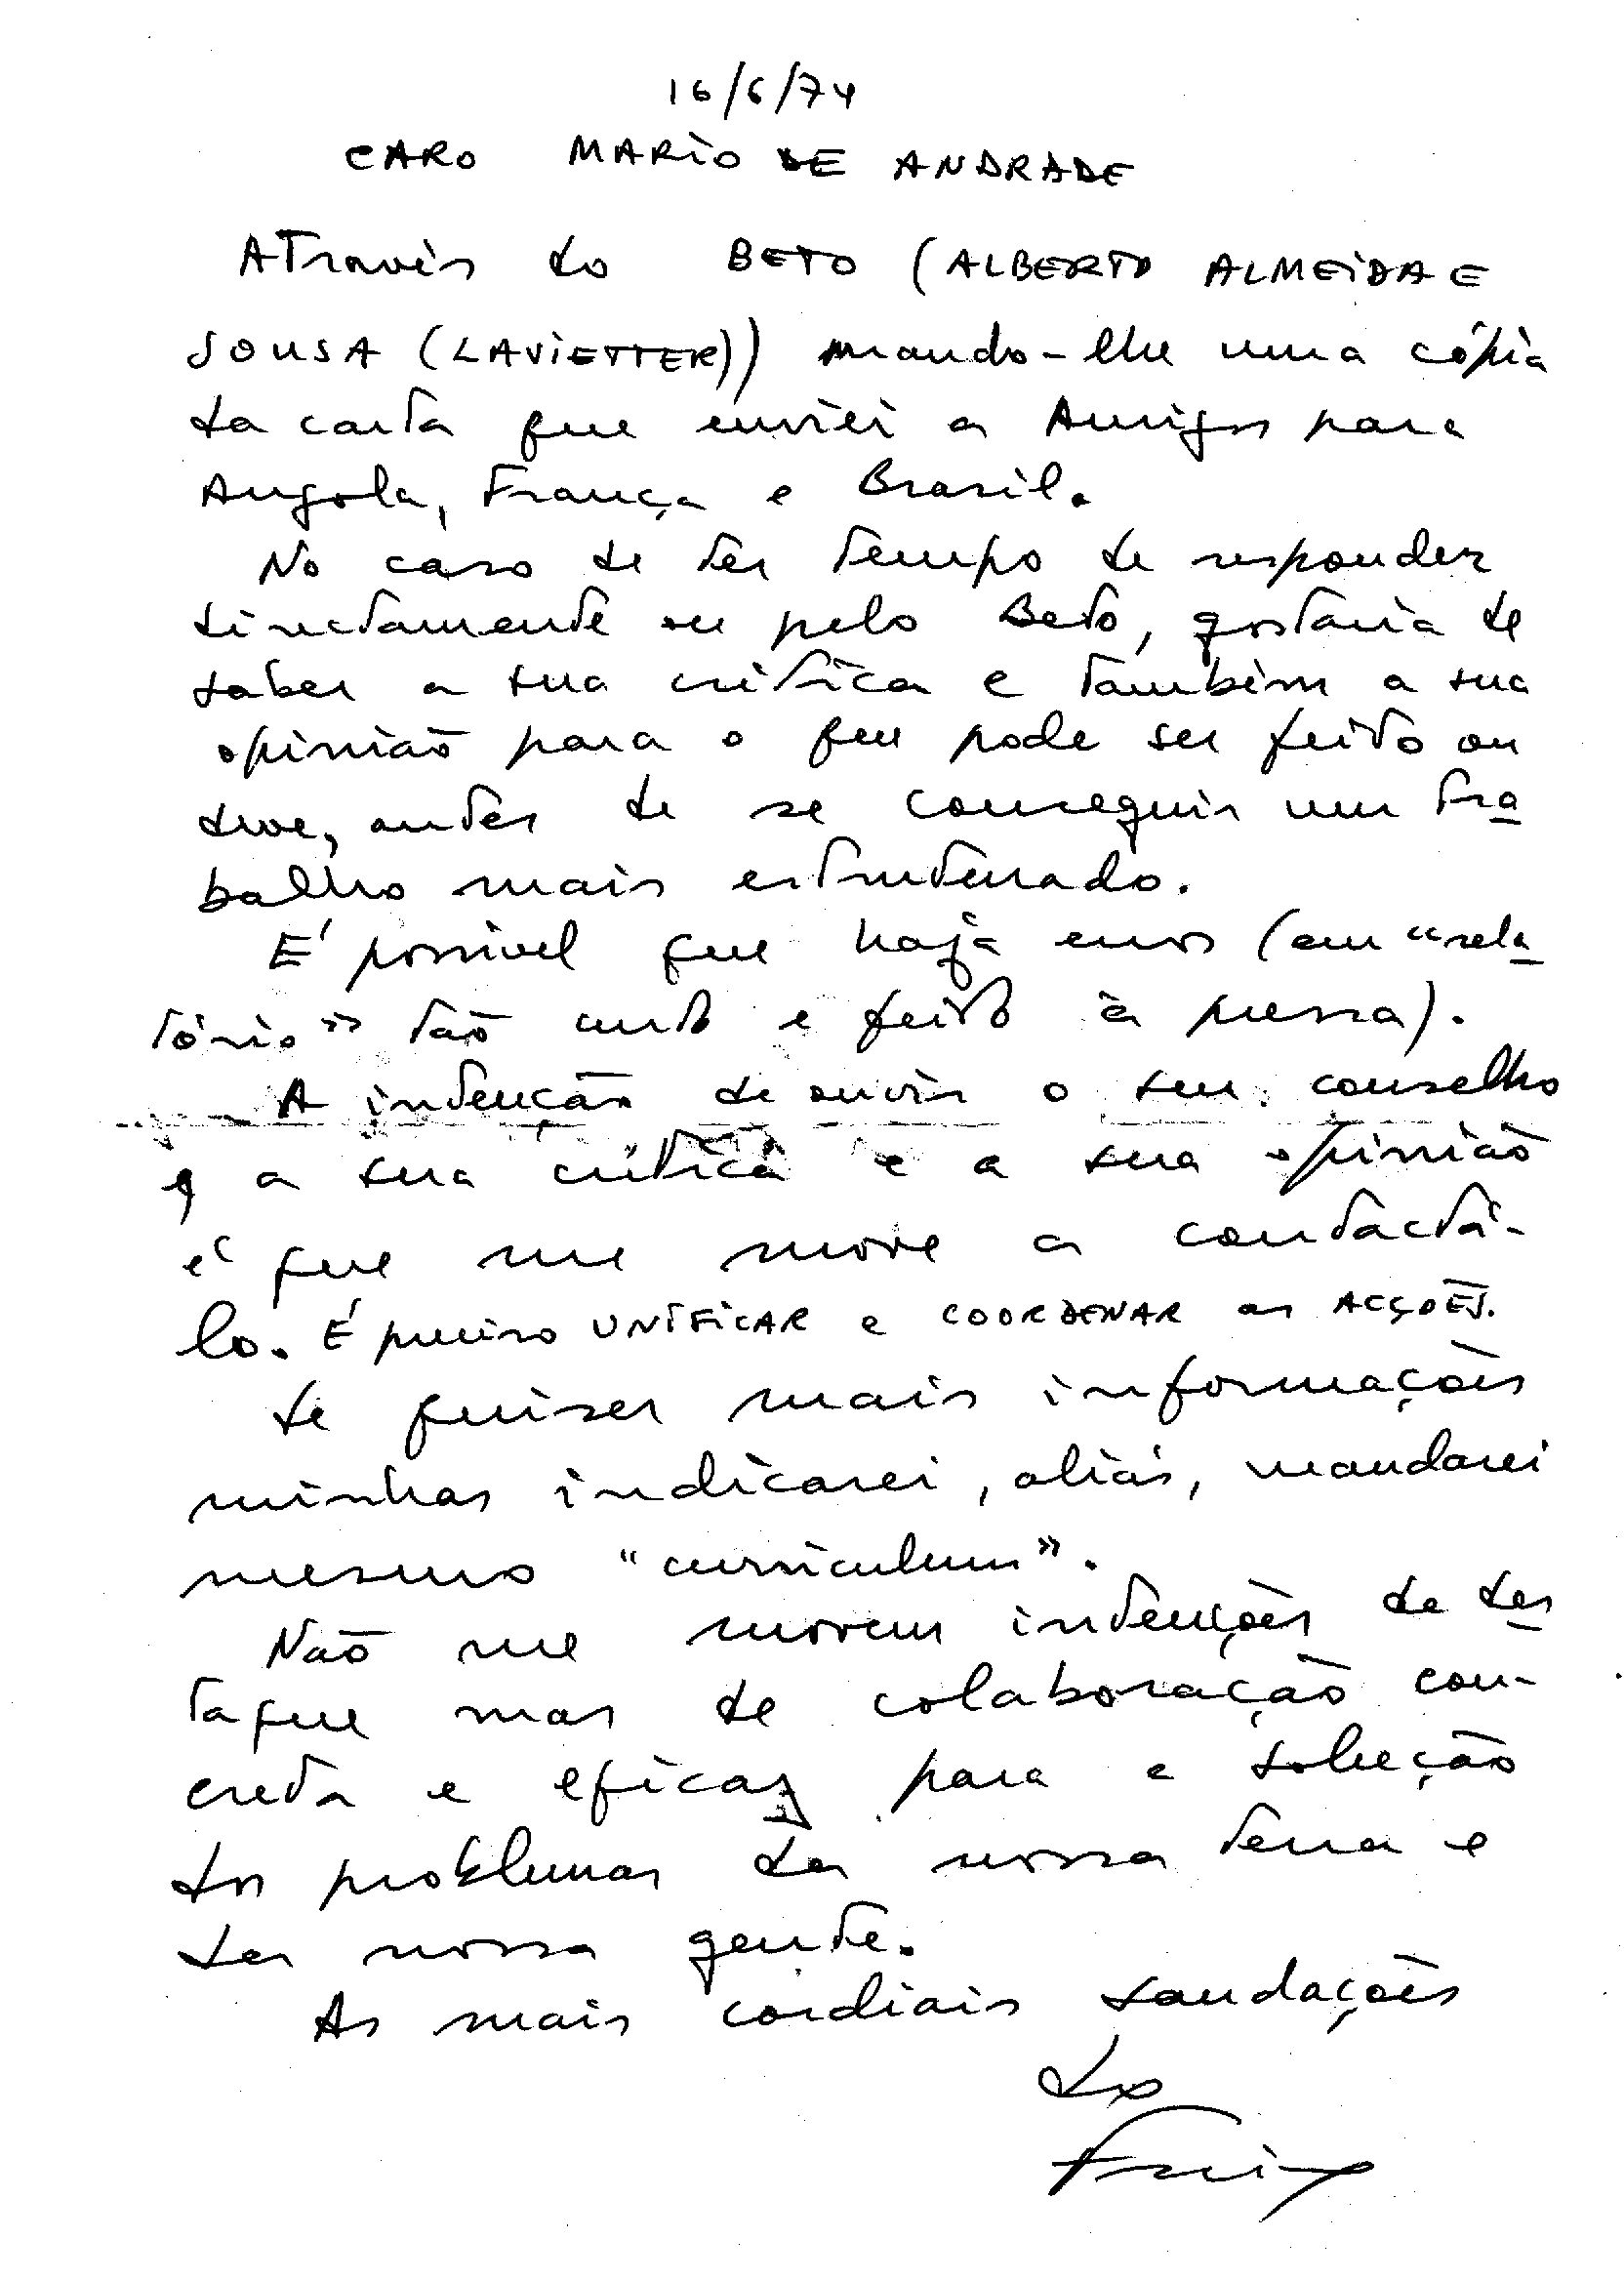 16/6/74
CARO MARIO DE ANDRADE
Através do BETO (ALBERTO ALMEIDA E
SOUSA (LAVIETTER)) mando-lhe uma cópia
da carta que enviei a Amigos para
Angola, França e Brasil.
No caso de ter tempo de responder
directamente ou pelo Beto, gostaria de
saber a sua crítica e também a sua
opinião para o que pode ser feito ou
deve, antes de se conseguir um tra
balho mais estruturado.
É possivel que haja erros (em "rela
tório" tão curto e feito à pressa).
A intenção de ouvir o seu conselho
e a sua crítica e a sua opinião
é que me move a contactá-
lo. É preciso UNIFICAR e COORDENAR as ACÇÕES.
Se quiser mais informações
minhas indicarei, aliás, mandarei
mesmo "curriculum".
Não me movem intenções de des
taque mas de colaboração con-
creta e eficaz para a solução
dos problemas da nossa terra e
da nossa gente.
As mais cordiais saudações
do